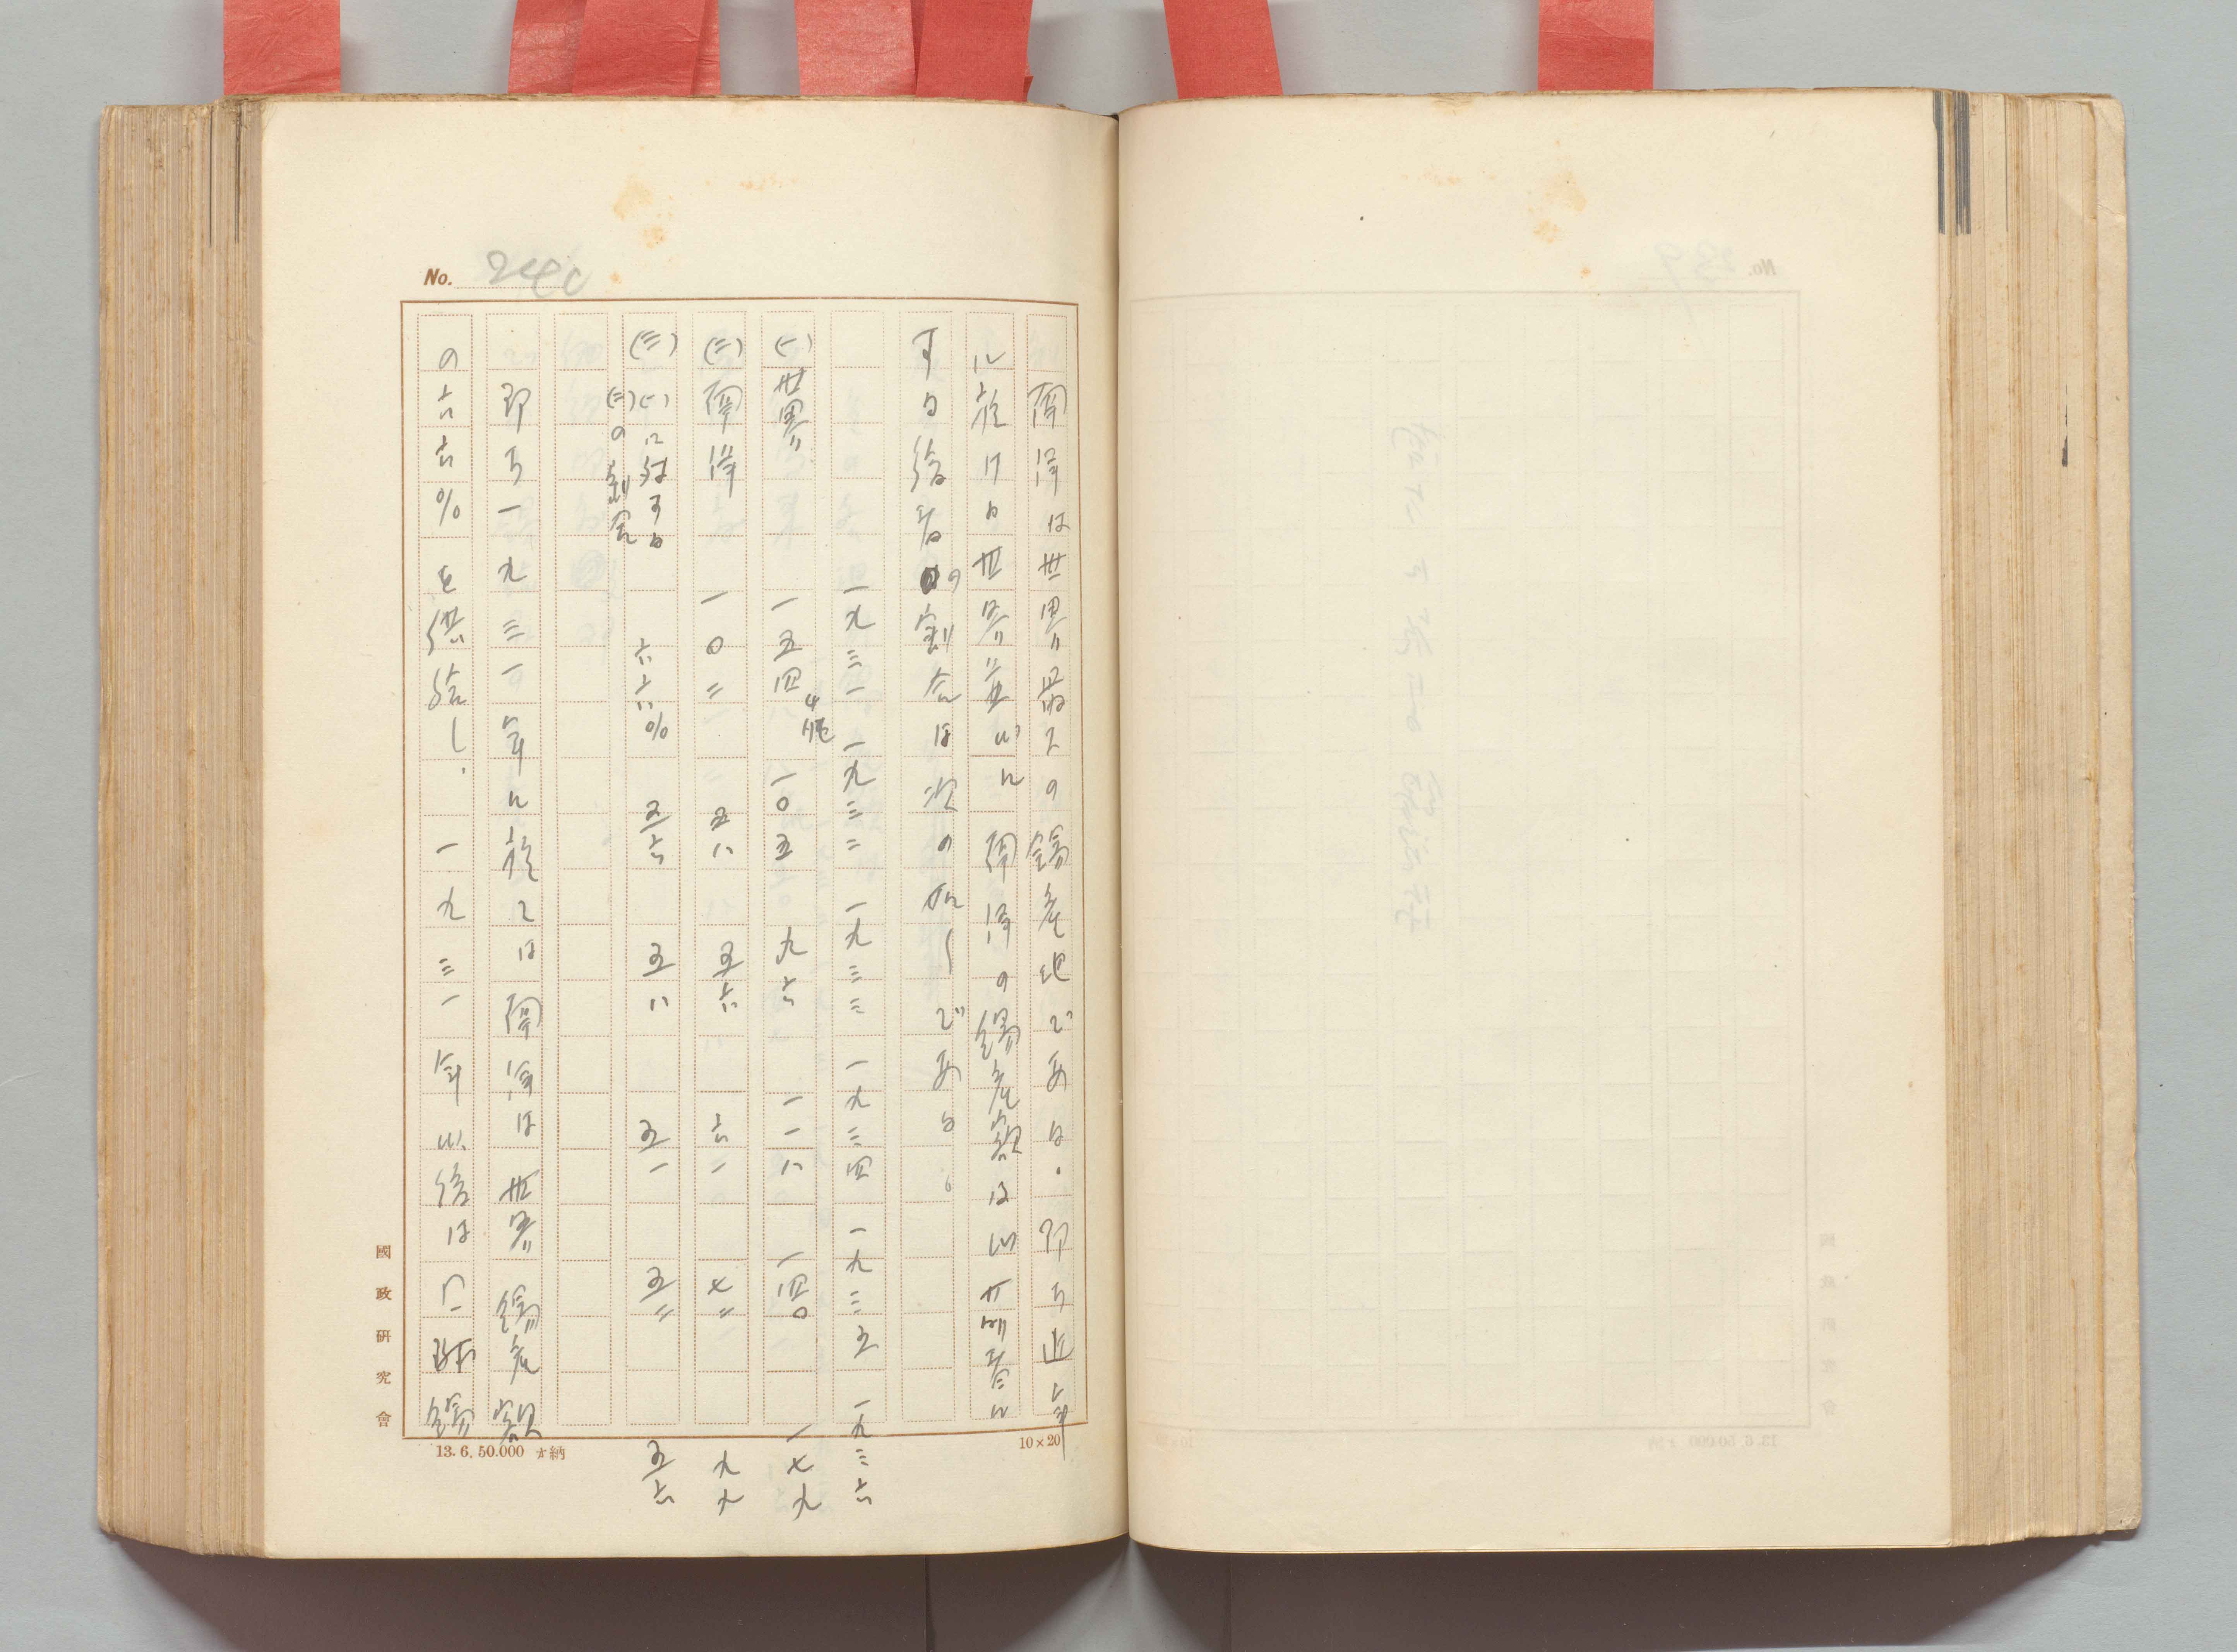 No. 240
南洋は世界最大の錫産地である。即ち近年
に於ける世界並びに南洋の錫産額は
する後者の割合は次の如しである。
一九三一 一九三二 一九三三 一九三四 一九三五 一九三六
(一)世界 一五四千瓲 一〇五 九六 一一八 一四〇 一七九
(二)南洋 一〇二 五八 五六 六一 七二 九九
(三)(一)に対する(二)の割合 六六% 五六 五八 五一 五二 五六
即ち一九三一年に於ては南洋は世界錫産額
の六六%を供給し、一九三一年以後は 錫
國政研究會
13. 6. 50.000 納
10×20